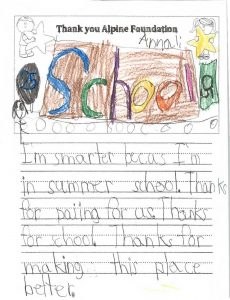 Thank you Alpine Foundation
Annali
School
I'm smarter becas I'm
in sumper school. Thanks
for paiing for us. Thanks
for chool. Thanks for
making this place
better.